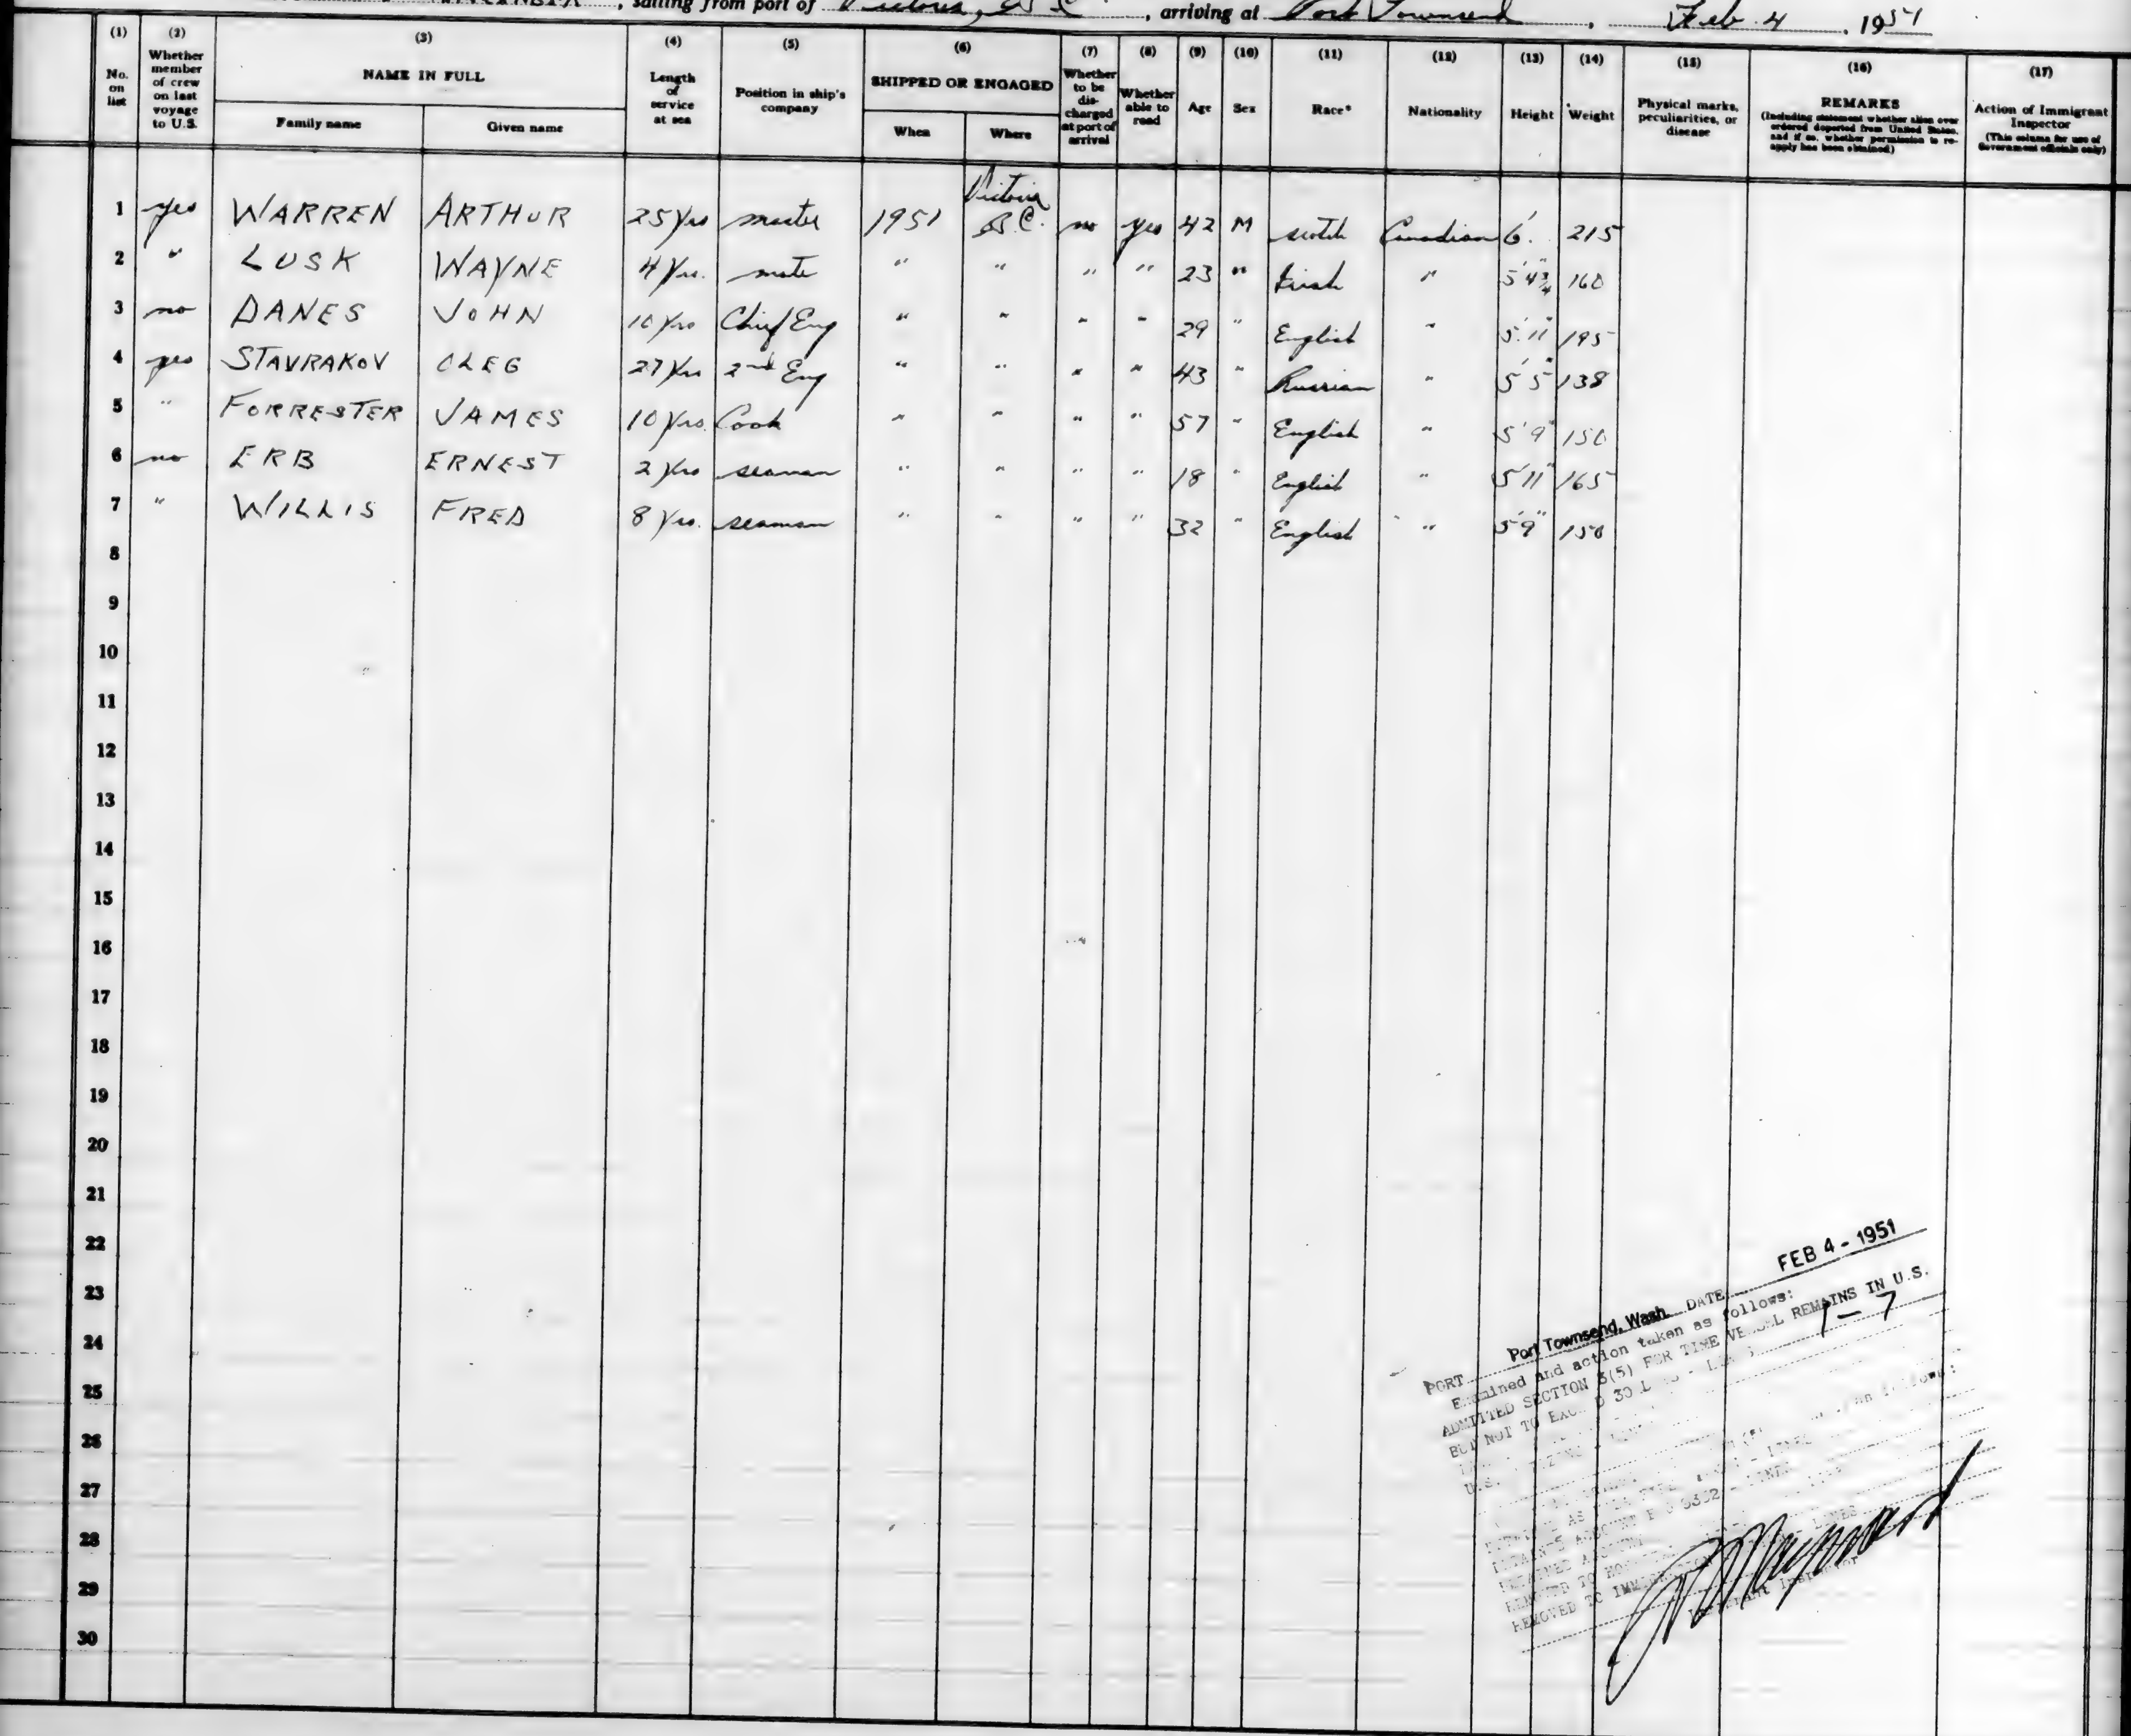 , sailing from port of Victoria, B C, arriving at Port Townsend, Feb. 4, 1951
(1) (2) (3) (4) (5) (6) (7) (8) (9) (10) (11) (12) (13) (14) (15) (16) (17)
No. on list
Whether member of crew on last voyage to U.S.
NAME IN FULL
Family name Given name
Length of service at sea
Position in ship's company
SHIPPED OR ENGAGED
When Where
Whether to be discharged at port of arrival
Whether able to read
Age
Sex
Race*
Nationality
Height
Weight
Physical marks, peculiarities, or disease
REMARKS
(Including statement whether alien ever ordered deported from United States, and if so, whether permission to re-apply has been obtained)
Action of Immigrant Inspector
(This column for use of Government officials only)
1 yes WARREN ARTHUR 25 Yrs master 1951 Victoria B.C. no yes 42 M scotch Canadian 6' 215
2 " LUSK WAYNE 4 Yrs. mate " " " " 23 " Irish " 5'4¾" 160
3 no DANES JOHN 10 Yrs Chief Eng " " " " 29 " English " 5'11" 195
4 yes STAVRAKOV OLEG 27 Yrs 2nd Eng " " " " 43 " Russian " 5'5" 138
5 " FORRESTER JAMES 10 Yrs. Cook " " " " 57 " English " 5'9" 150
6 no ERB ERNEST 2 Yrs seaman " " " " 18 " English " 5'11" 165
7 " WILLIS FRED 8 Yrs. seaman " " " " 32 " English " 5'9" 150
8
9
10
11
12
13
14
15
16
17
18
19
20
21
22
23
24
25
26
27
28
29
30
PORT Port Townsend, Wash. DATE FEB 4 - 1951
Examined and action taken as follows:
ADMITTED SECTION 3(5) FOR TIME VESSEL REMAINS IN U.S.
BUT NOT TO EXCEED 30 1-7
U.S.
REMOVED TO
REMOVED TO
Immigrant Inspector